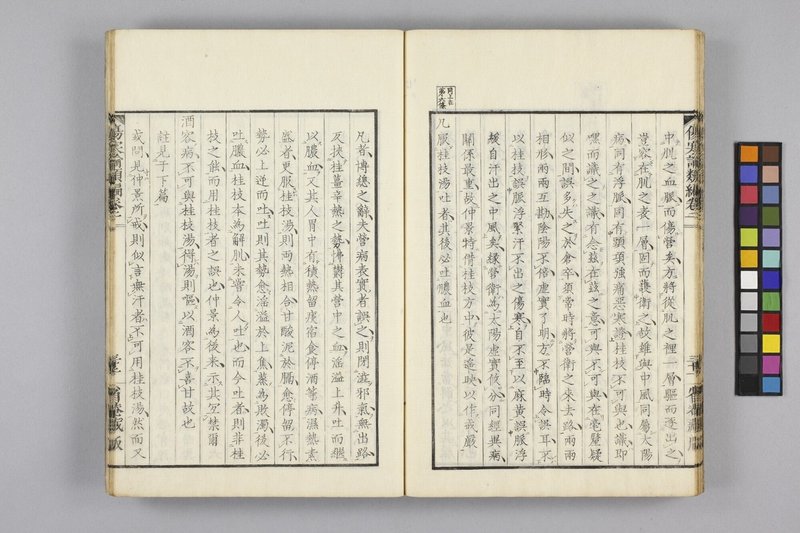 中肌之血脈而傷營矣方將從肌之裡一層驅而逐出之
豈容在肌之表一層固而護衛之故雖與中風同屬太陽
病同有浮脈同有頭項強痛惡寒證桂枝不可與也識即
嘿而識之之識有念茲在茲之意可與不可與在毫釐疑
似之間誤多失之於倉卒須常時將營衛之來去路兩兩
相形兩兩互勘陰陽不倍虛實了朝方不臨時令誤耳不
以桂枝誤脈浮緊汗不出之傷寒自不至以麻黃誤脈浮
緩自汗出之中風矣緣營衛為太陽虛實攸分同經異病
關係最重故仲景特借桂枝方中彼是遮映以作戒嚴
同上在
第六條
凡服桂枝湯吐者其後必吐膿血也
凡者博總之辭夫營病表實者誤之則閉邪氣無出路
及挾桂薑辛熱之勢怫鬱其營中之血湓溢上升吐而繼
以膿血又其人胃中有積熱留痰宿食停酒等病濕熱素
盛者更服桂枝湯則兩熱相合甘酸泥於膈愈停留不行
勢必上逆而吐吐則其勢愈湓溢於上焦蒸為敗濁後必
吐膿血桂枝本為解肌未嘗令人吐也而今吐者則非桂
枝之能而用桂枝者之誤也仲景為後來示其冥禁爾
酒客病不可與桂枝湯得湯則嘔以酒客不喜甘故也
註見于下篇
或問見仲景所戒則似言無汗者不可用桂枝湯然而又
傷寒論類編卷二